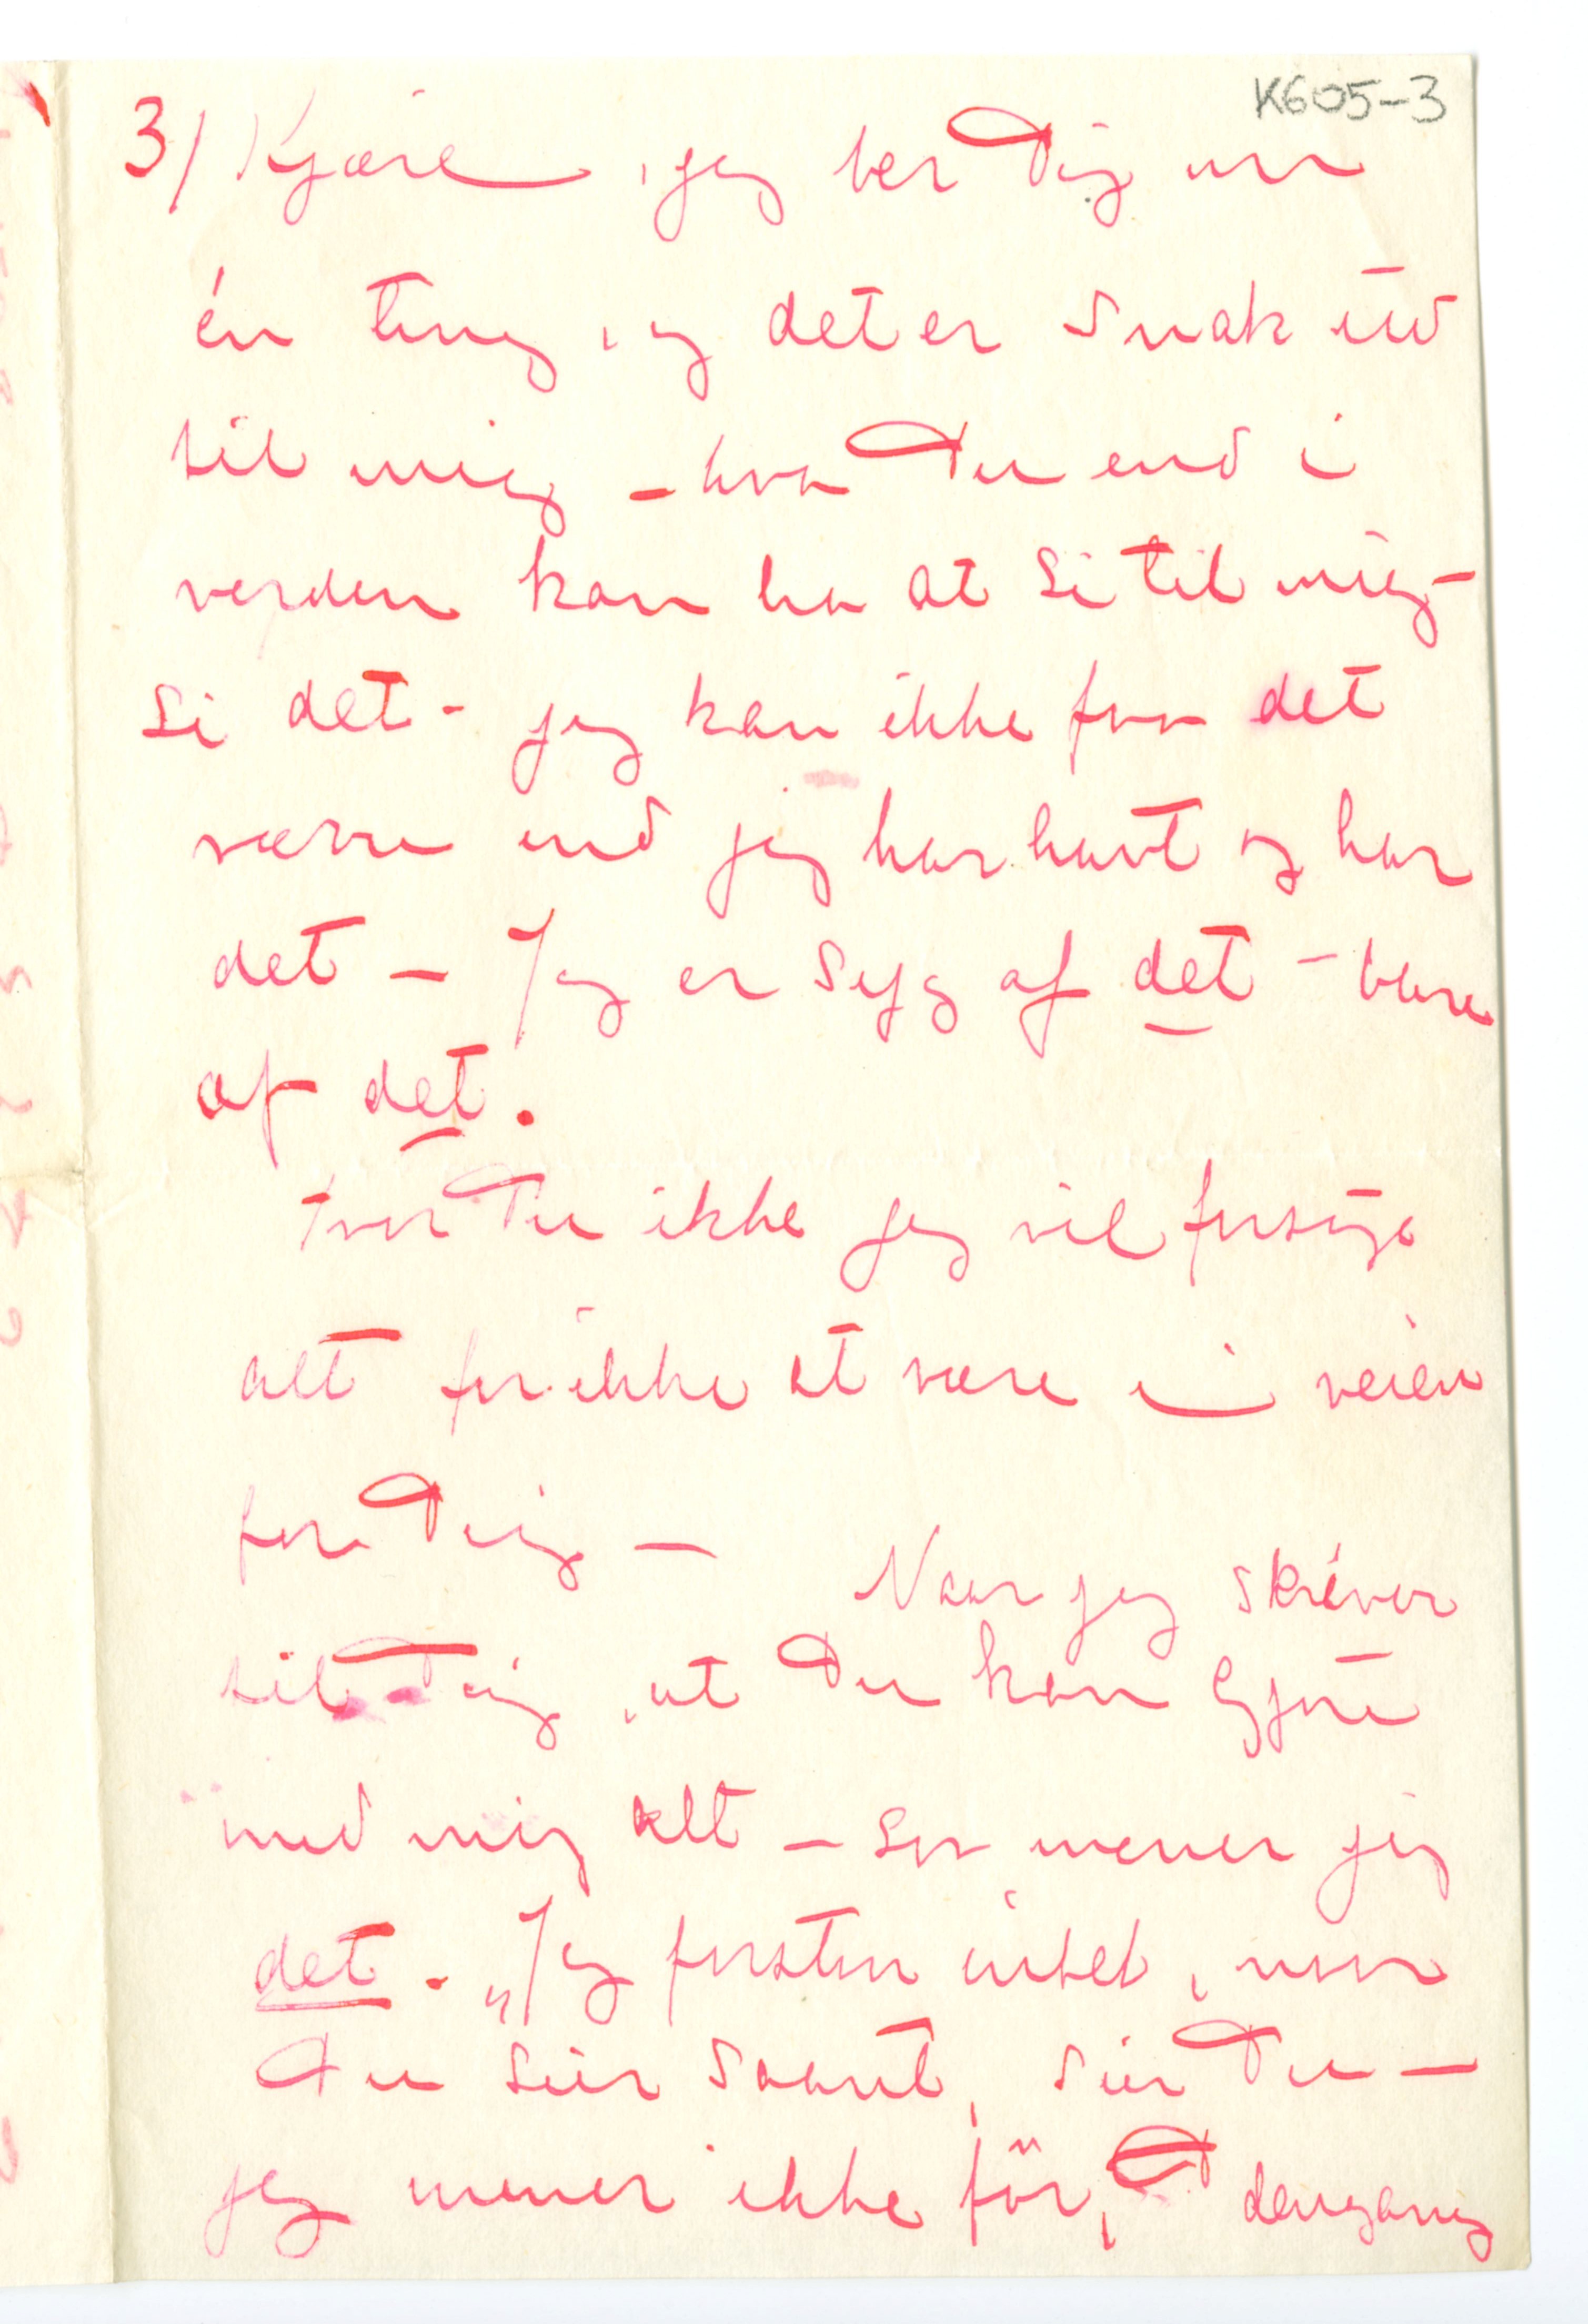 K605-3
3/ Kjære, jeg ber Dig om
én ting, og det er snak ud
til mig – hva Du end i
verden kan ha at si til mig –
si det – jeg kan ikke faa det
værre end jeg har havt og har
det – Jeg er syg af det – bare
af det.
Tror Du ikke jeg vil forsøge
alt for ikke at være i veien
for Dig – Naar jeg skriver
til Dig, at Du kan gjøre
med mig alt – saa mener jeg
det. „Jeg forstaar intet, naar
Du siir saant, siir Du –
jeg mener ikke før, dengang